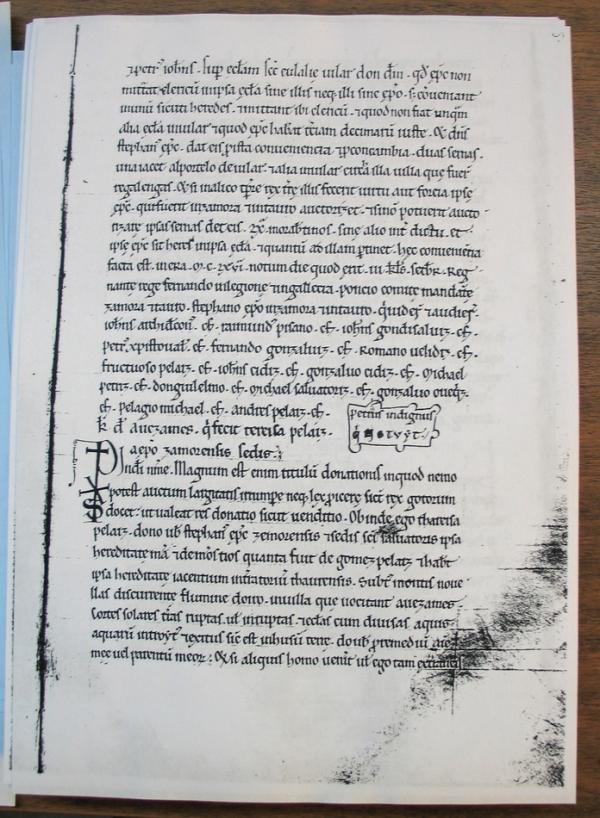 ⁊ petrꝰ ioħns. sup ecłam scē eulalie uilar don diñ. qđ epc̄ non
mittat clericū in ipsa ecła sine illis neq; illi sine epo. s; conueniant
in unū sicuti heredes. ⁊ mittant ibi clericū. ⁊ quod non fiat unqm̄
alia ecła in uilar ⁊ quod epc̄ habeat tciam decimarū iuste. Et dñs
stephanꝰ epc̄. dat eis p ista conueniencia ⁊ p concambia. duas sernas.
una iacet al portelo de uilar. ⁊ alia in uilar circa illa uilla que fuer̄
regalengas. Et si in alico tp̄re rex
epc̄. qui fuerit in zamora
nizare ipsas sernas det eis. morabtinos. sine alio
ipse epc̄ sit heres in ipsa ecła. ⁊ quantū ab illam ptinet. hec conueniētia
facta est. in era. notum die quod erit. kłs. setbr̄. Reg
nante rege fernando in legione ⁊ in gallecia. poncio comite mandāte
zamora ⁊ tauro. stephano epo in zamora ⁊ in tauro. qui uideř ⁊ audieř.
ioħns archidicon̄. cf̄. raimundꝰ pisano. cf̄. ioħns gondisaluiz. cf̄.
petrꝰ xp̄istoual. cf̄. fernando gonzaluiz. cf̄. Romano uelidiz. cf̄.
fructuoso pelaiz. cf̄. ioħns cidiz. cf̄. gonzaluo cidiz. cf̄. Michael
petriz. cf̄. don guilelmo. cf̄. Michael saluatoriz. cf̄. gonzaluo oueq̄z.
cf̄. pelagio michael. cf̄. andres pelaiz. cf̄.
petrus indignus
k̄ đ auezames. q̄ fecit teresa pelaiz.
notuyt.
a epo zamorensis sedis.
In dī nn̄e. Magnum est enim titulū donationis in quod nemo
potest auctum largitatis inrumpe neq; lex proicere sic̄ rex gotorum
docet. ut ualeat res donatio sicut uenditio. Ob inde ego tharesa
pelaiz. dono uobꝭ stephanꝰ epc̄ zemorensis ⁊ sedis scī saluatoris ipsa
hereditate mā ⁊ de meos tios quanta fuit de gomez pelaiz ⁊ habet
ipsa hereditate iacentium in tiatoriū thaurensis. Subtꝰ montis noue
llas discurrente flumine doiro. in uilla que uocitant auezames.
Cortes solares tr̄as ruptas. uł inruptas. ⁊ eclas cum diuisas aquis
aquarū introyt̄ ⁊ exitus sic̄ est in husiū terre. do uobꝭ p remediū aīe
mee uel parentū meorꝝ. Et si aliquis homo uenit̄ uł ego tam